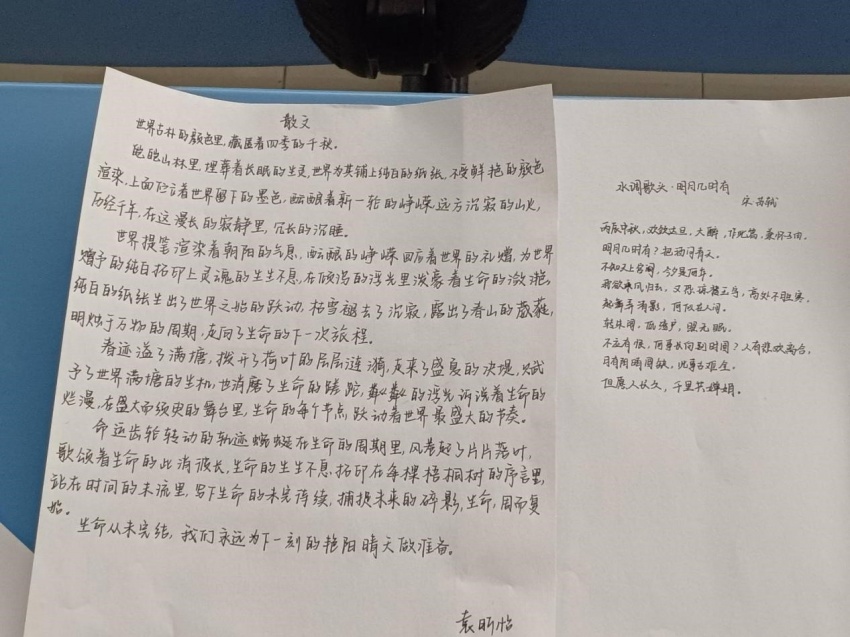 散文
世界古朴的颜色里,藏匿着四季的千秋。
皑皑山林里,埋葬着长眠的生灵,世界为其铺上纯白的纸张,不受鲜艳的颜色
渲染,上面伫立着世界留下的墨色,酝酿着新一轮的峥嵘,远方沉寂的山火,
历经千年,在这漫长的寂静里,冗长的沉睡。
世界提笔渲染着朝阳的气息,酝酿的峥嵘回应着世界的礼赠,为世界
赠予的纯白拓印上灵魂的生生不息,在倾泻的浮光里泼豪着生命的潋滟,
纯白的纸张生出了世界之始的跃动,枯雪褪去了沉寂,露出了春山的葳蕤,
明烛于万物的周期,走向了生命的下一次旅程。
春迹溢了满塘,拨开了荷叶的层层涟漪,走来了盛夏的决堤,赋
予了世界满塘的生机,也消磨了生命的蹉跎,粼粼的浮光诉说着生命的
烂漫,在盛大而须臾的舞台里,生命的每个节点,跃动着世界最盛大的节奏。
命运齿轮转动的轨迹蜿蜒在生命的周期里,风卷起了片片落叶,
歌颂着生命的此消彼长,生命的生生不息,拓印在每棵梧桐树的序言里,
站在时间的末流里,写下生命的未完待续,捕捉未来的碎影,生命,周而复
始。
生命从未完结,我们永远为下一刻的艳阳晴天做准备。
袁昕怡
水调歌头·明月几时有
宋 苏轼
丙辰中秋,欢饮达旦,大醉,作此篇,兼怀子由。
明月几时有?把酒问青天。
不知天上宫阙,今夕是何年。
我欲乘风归去,又恐琼楼玉宇,高处不胜寒。
起舞弄清影,何似在人间。
转朱阁,低绮户,照无眠。
不应有恨,何事长向别时圆?人有悲欢离合,
月有阴晴圆缺,此事古难全。
但愿人长久,千里共婵娟。